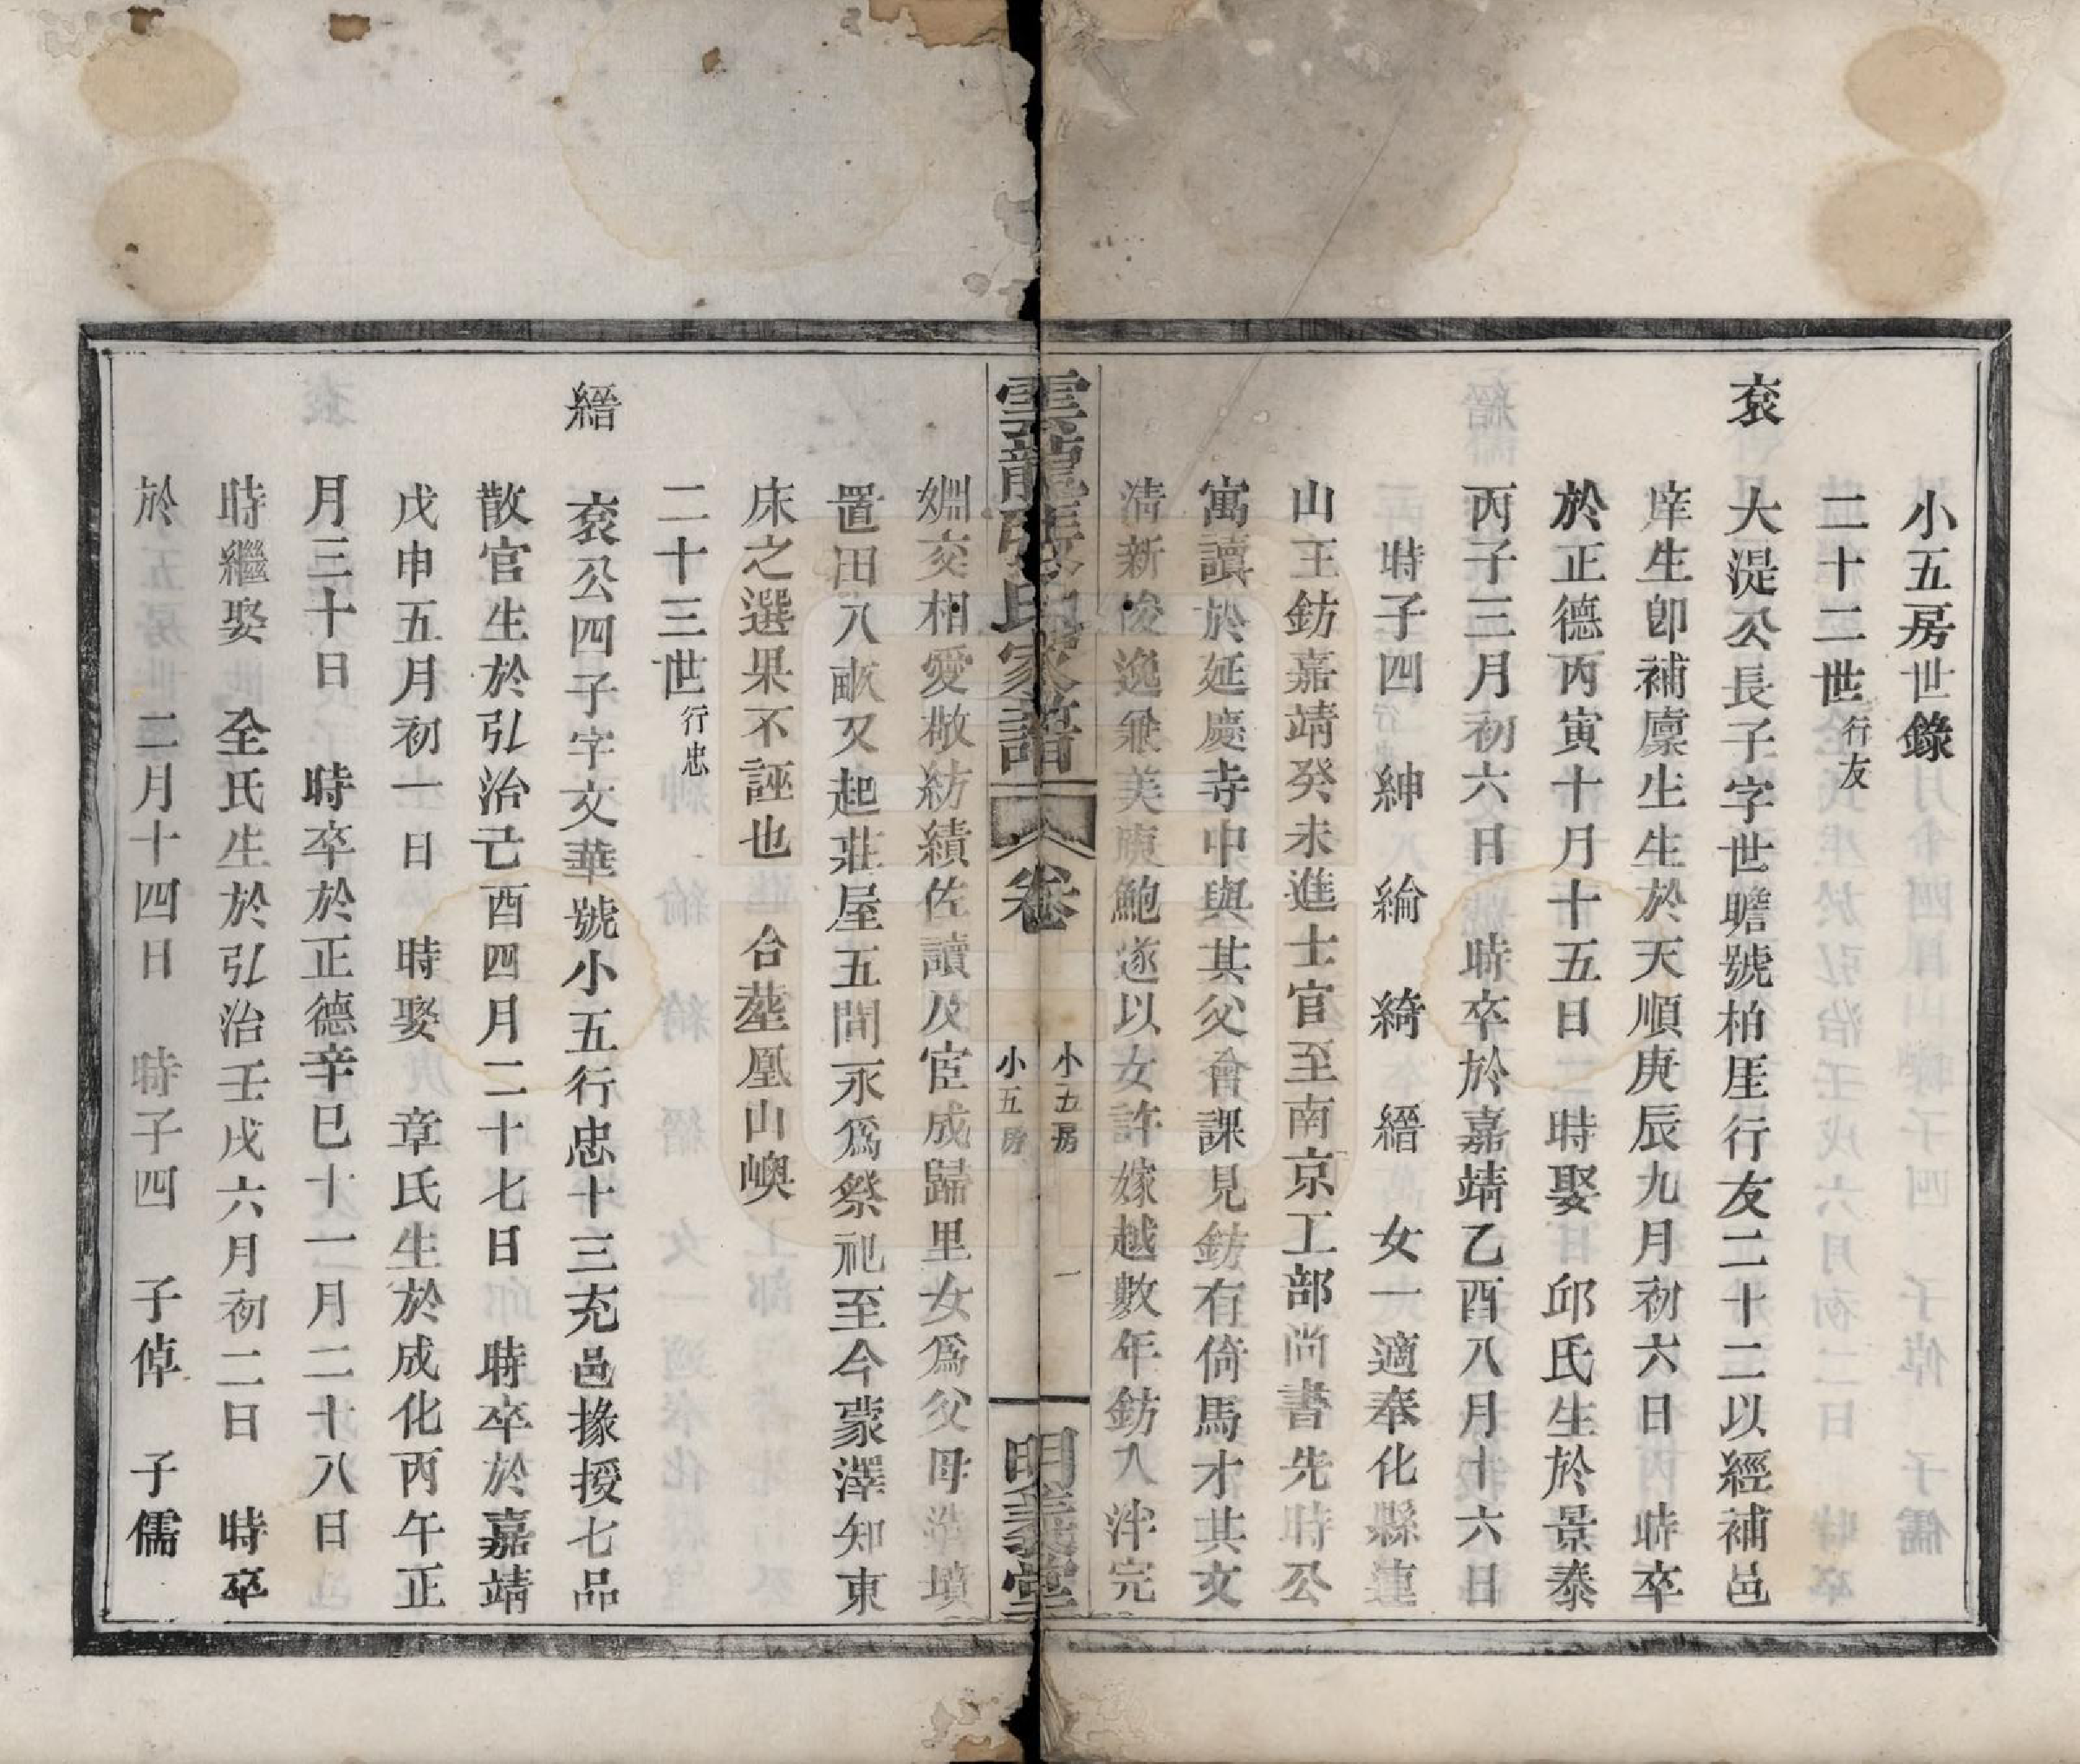 小五房世錄
二十二世行友
袞　大湜公長子字世瞻號柏厓行友二十二以經補邑
庠生卽補廩生生於天順庚辰九月初六日　時卒
於正德丙寅十月十五日　時娶　邱氏生於景泰
丙子三月初六日　時卒於嘉靖乙酉八月十六日
時子四　紳　綸　綺　縉　女一適奉化縣連
山王鈁嘉靖癸未進士官至南京工部尚書先時公
寓讀於延慶寺中與其父會課見鈁有倚馬才其文
清新俊逸兼美庾鮑遂以女許嫁越數年鈁入泮完
雲龍張氏家譜　卷　小五房　一　明義堂
小五房
姻交相愛敬紡績佐讀及宦成歸里女爲父母造墳
置田八畝又起莊屋五間永爲祭祀至今蒙澤知東
床之選果不誣也　合塟凰山嶼
二十三世行忠
縉　袞公四子字文華號小五行忠十三充邑掾授七品
散官生於弘治己酉四月二十七日　時卒於嘉靖
戊申五月初一日　時娶　章氏生於成化丙午正
月三十日　時卒於正德辛巳十一月二十八日
時繼娶　全氏生於弘治壬戌六月初二日　時卒
於　二月十四日　時子四　子倬　子儒